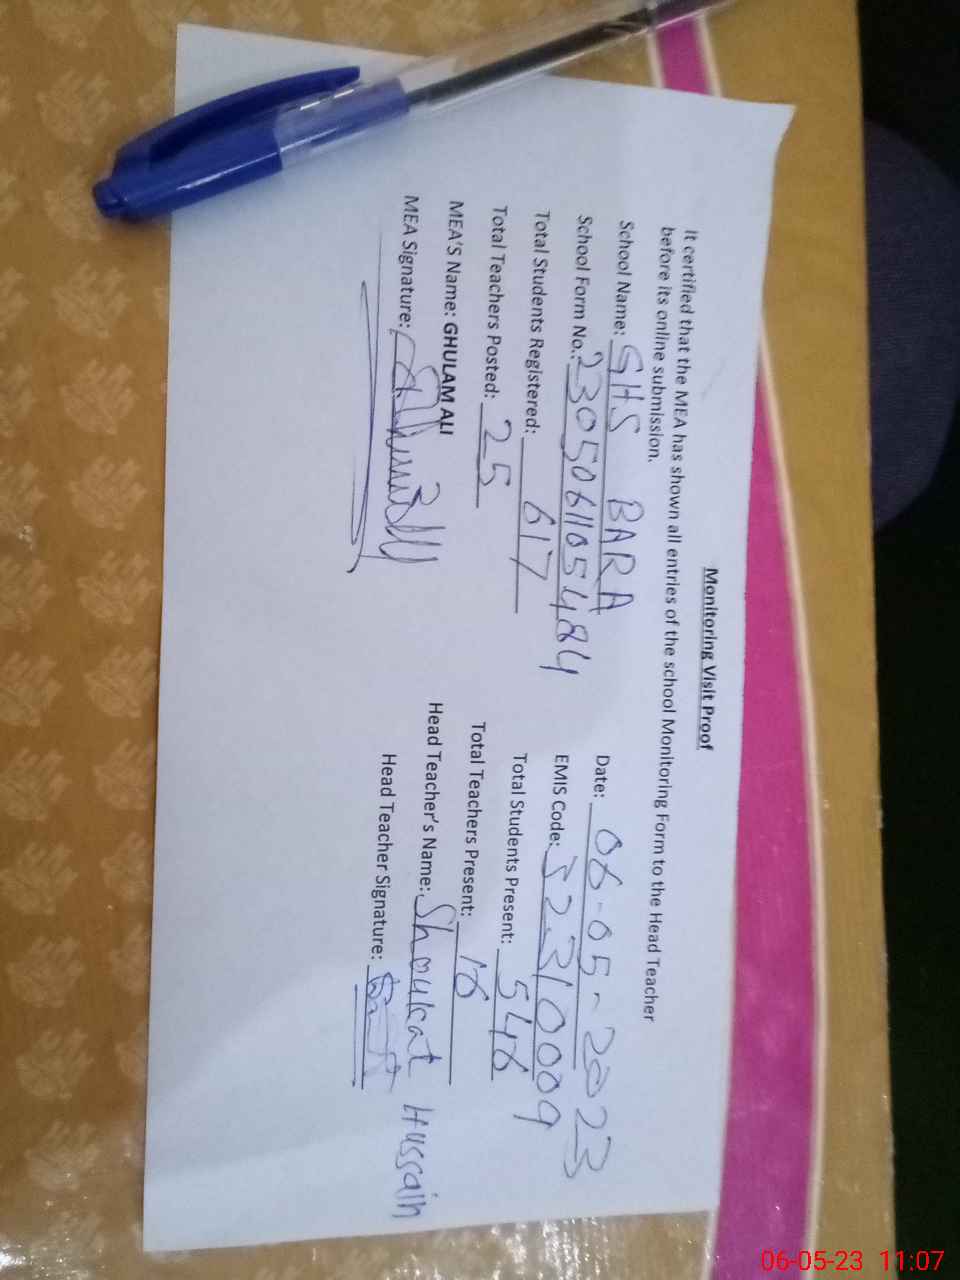 Monitoring Visit Proof
It certified that the MEA has shown all entries of the school Monitoring Form to the Head Teacher
before its online submission.
School Name: GHS BARA Date: 06-05-2023
School Form No.: 2305061105484 EMIS Code: 32310009
Total Students Registered: 617 Total Students Present: 546
Total Teachers Posted: 25 Total Teachers Present: 16
MEA'S Name: GHULAM ALI Head Teacher's Name: Shoukat Hussain
MEA Signature: Head Teacher Signature:
06-05-23 11:07